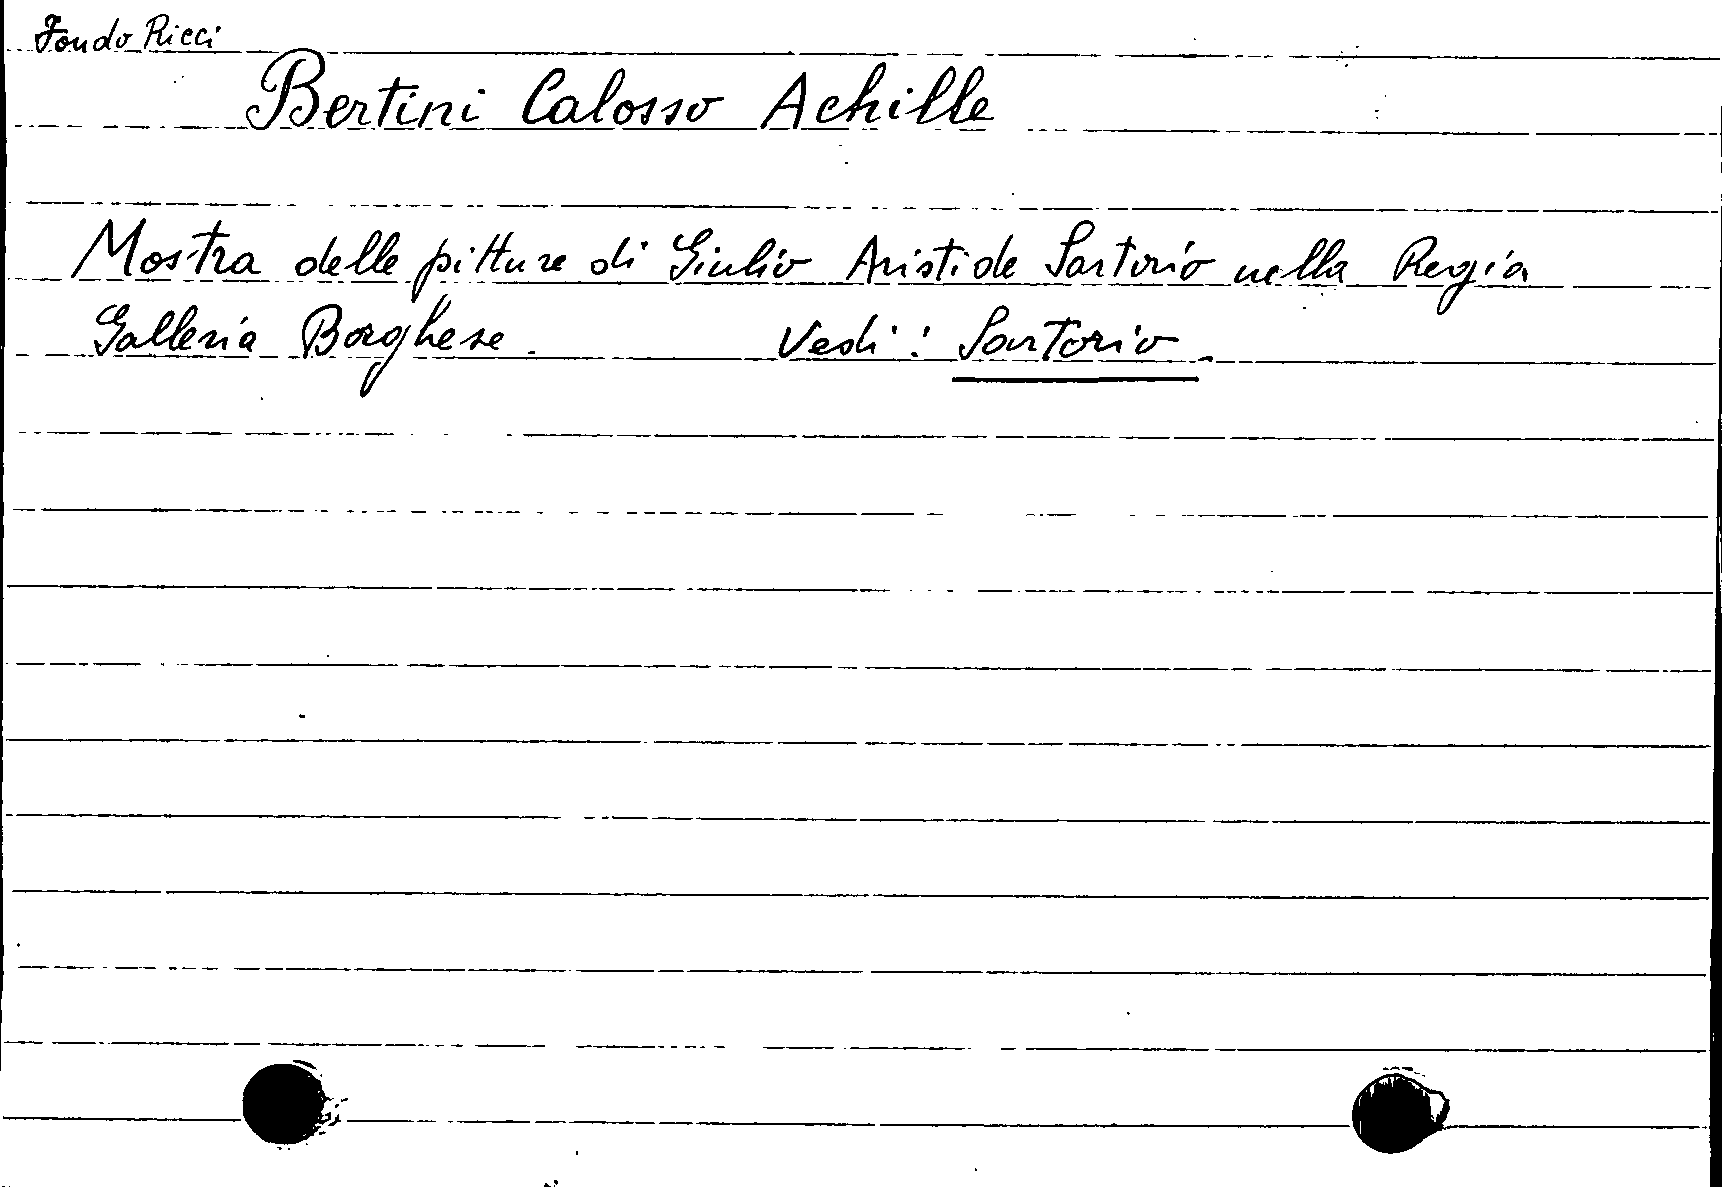 Fondo Ricci
Bertini Calosso Achille
Mostra delle pitture di Giulio Aristide Sartorio nella Regia
Galleria Borghese. Vedi: Sartorio.